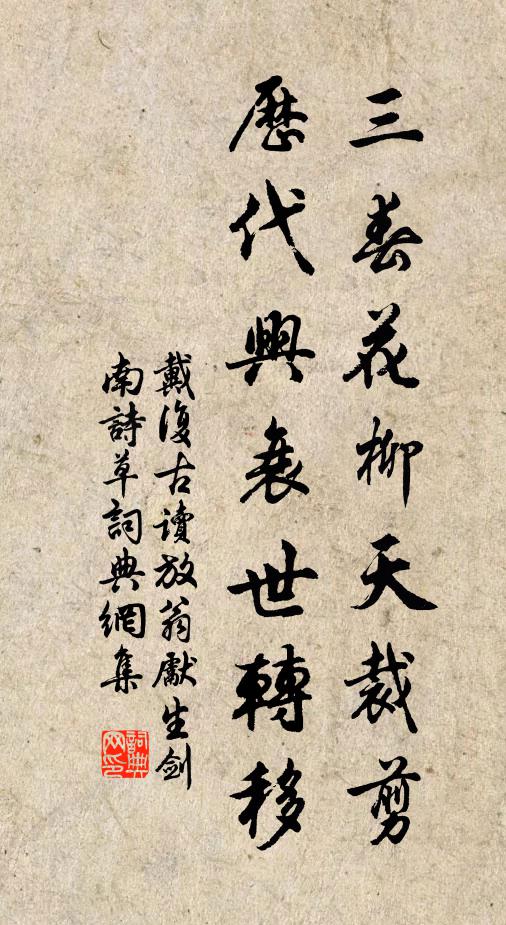 三春花柳天裁剪
歷代興衰世轉移
戴復古讀放翁獻生劍
南詩草詞典網集
詞典
网印